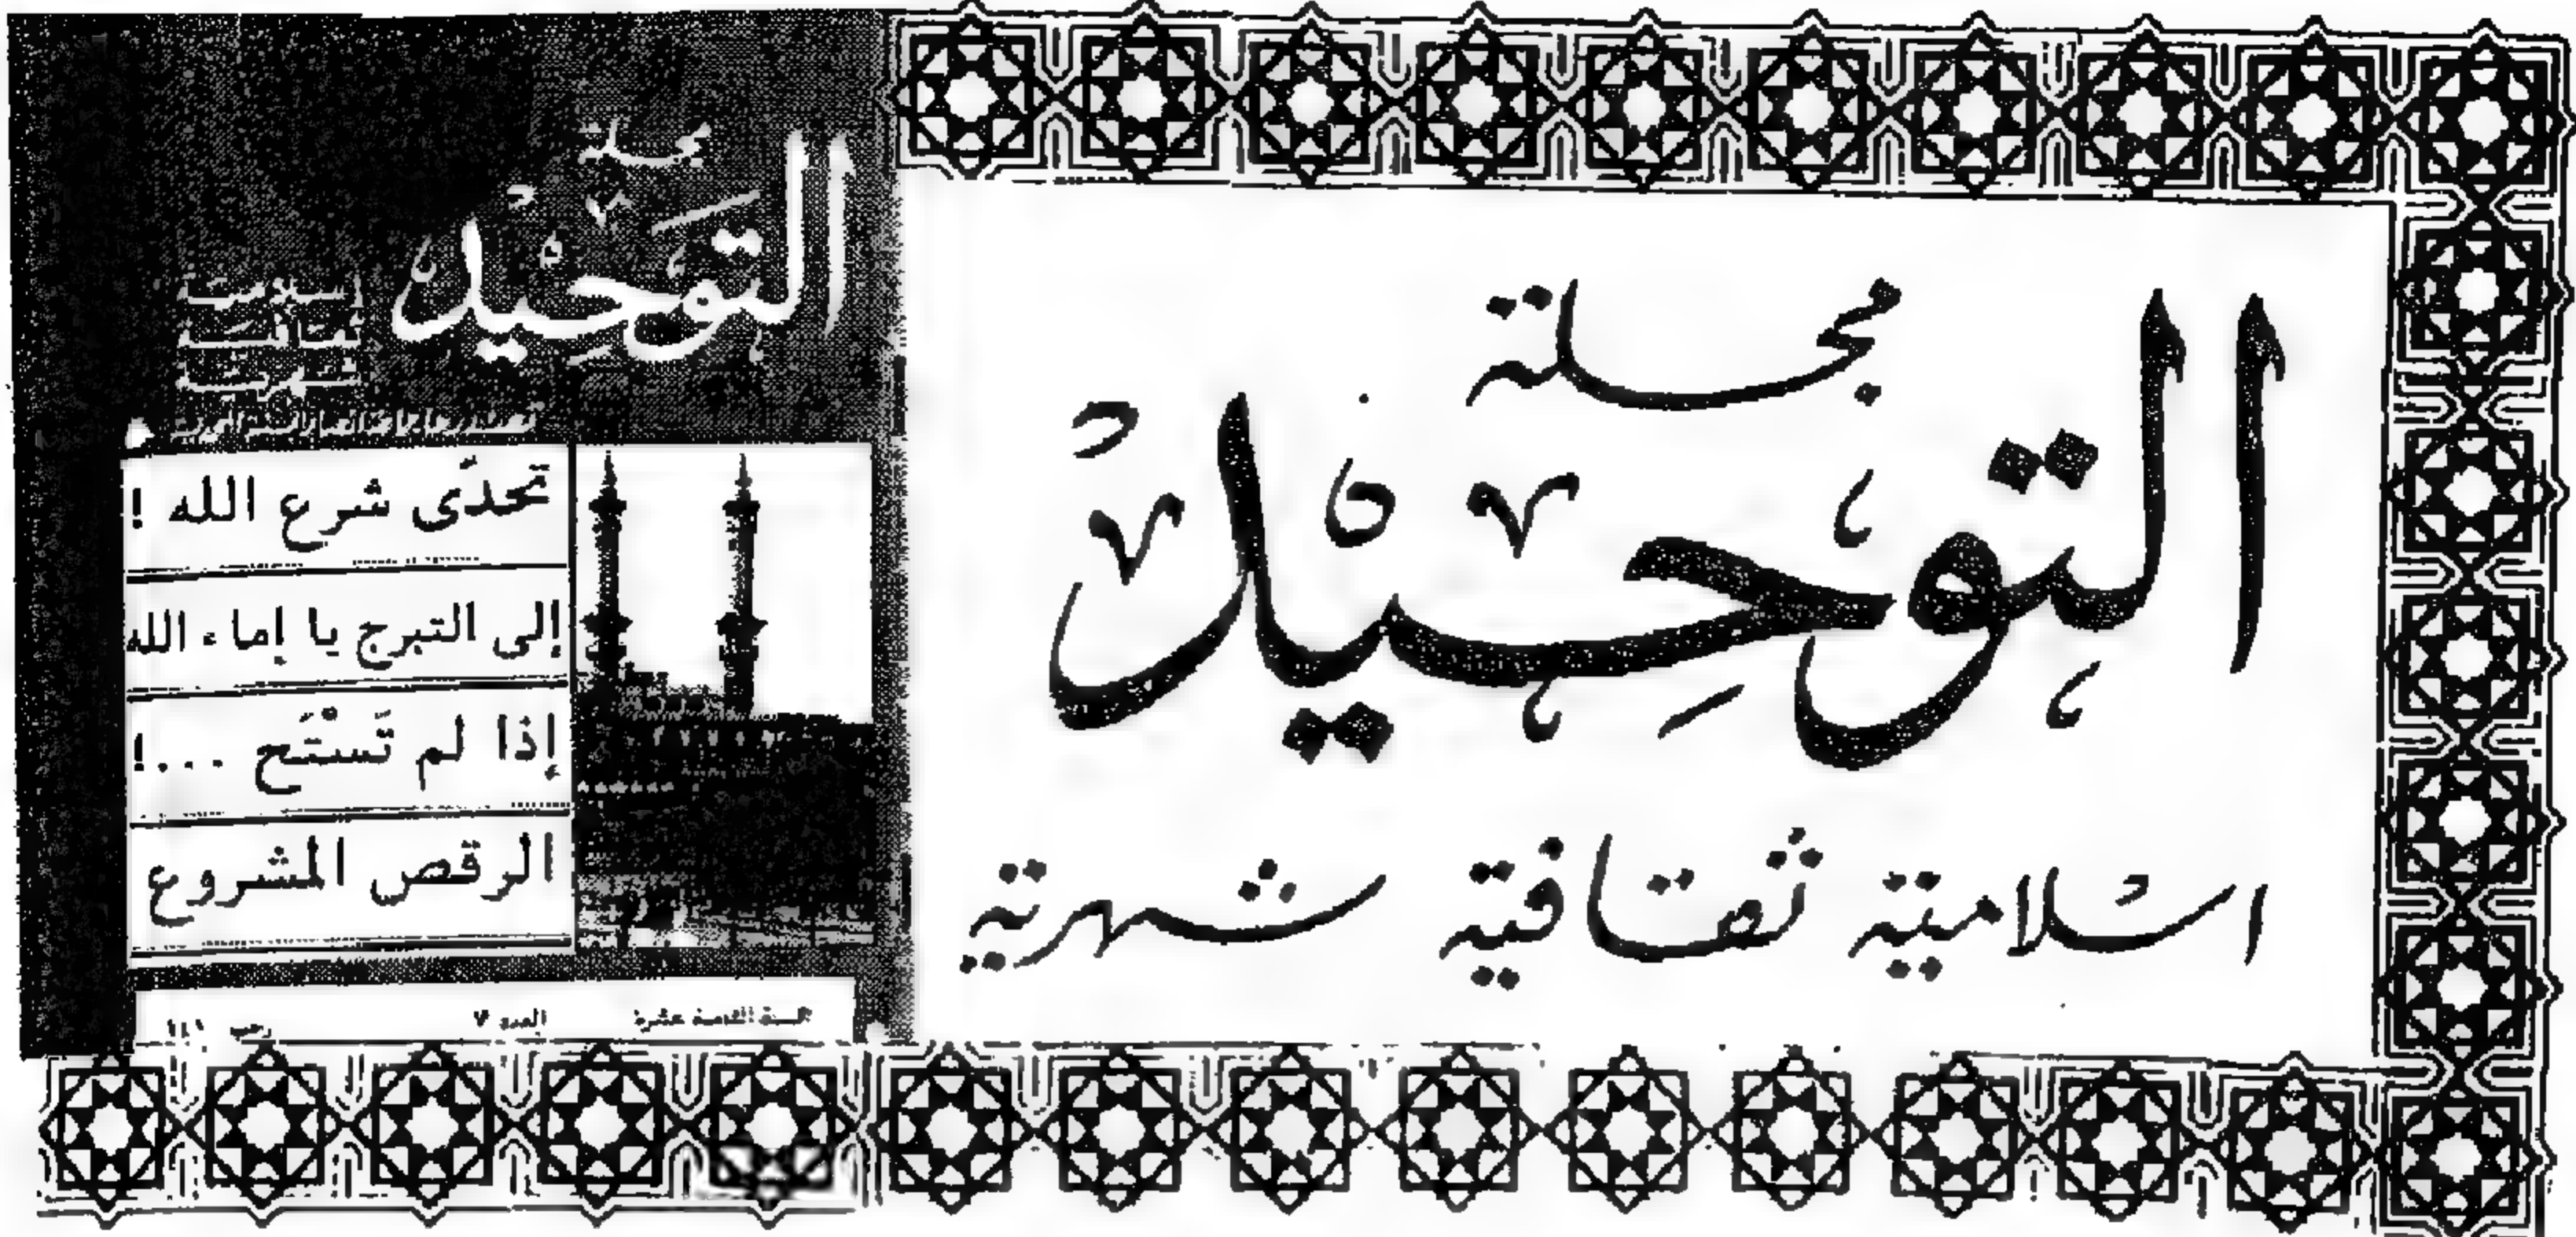 مجلة
التوحيد
اسلامية ثقافية شهرية
مجلة
التوحيد
إسلامية
ثقافية
شهرية
تحدّى شرع الله !
إلى التبرج يا إماء الله
إذا لم تَسْتَح ...!
الرقص المشروع
السنة الثامنة عشرة العدد ٧ رجب